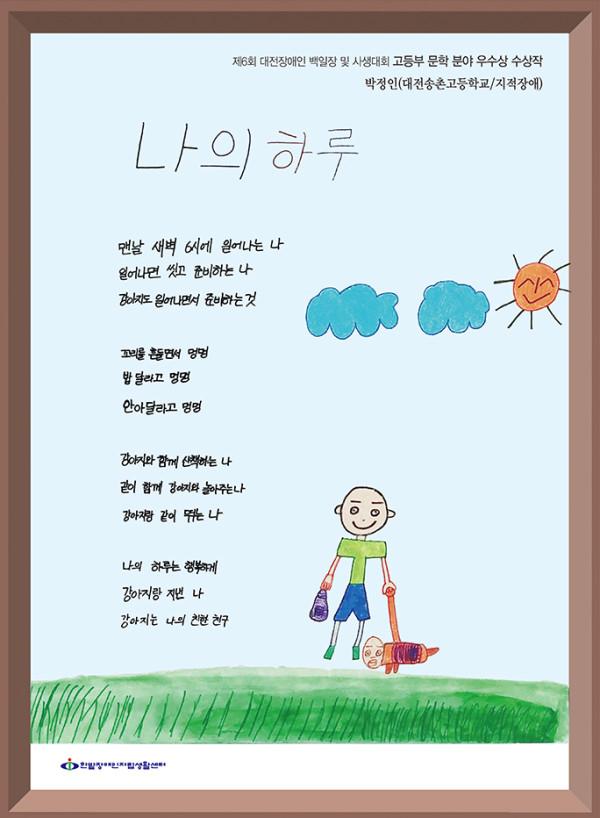 제6회 대전장애인 백일장 및 사생대회 고등부 문학 분야 우수상 수상작
박정인(대전송촌고등학교/지적장애)
나의 하루
맨날 새벽 6시에 일어나는 나
일어나면 씻고 준비하는 나
강아지도 일어나면서 준비하는 것
꼬리를 흔들면서 멍멍
밥 달라고 멍멍
안아달라고 멍멍
강아지와 함께 산책하는 나
같이 함께 강아지와 놀아주는 나
강아지랑 같이 뛰는 나
나의 하루는 행복하게
강아지랑 지낸 나
강아지는 나의 친한 친구
한밭장애인자립생활센터